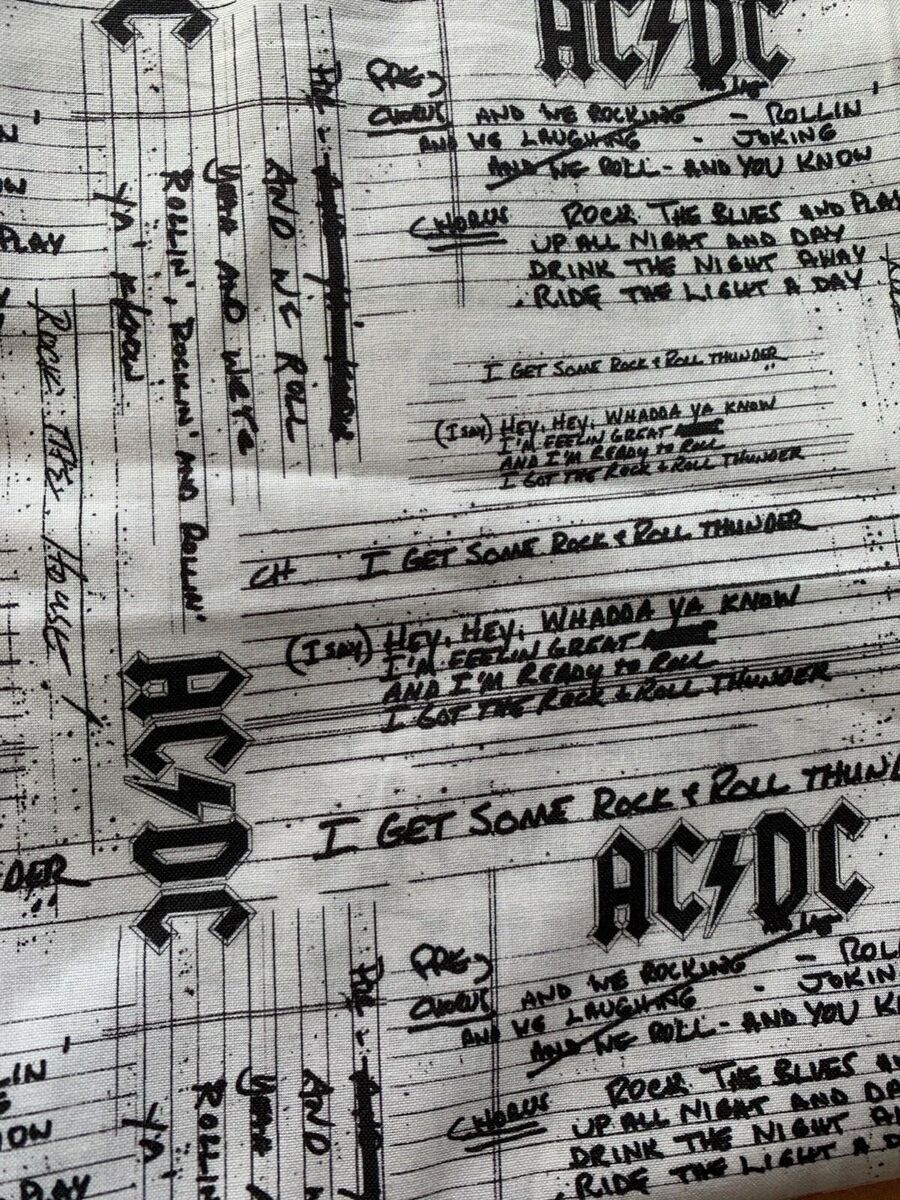 AC⚡DC
PRE,
CHORUS AND WE ROCKING - ROLLIN'
AND WE LAUGHING - JOKING
AND WE ROLL - AND YOU KNOW
CHORUS ROCK THE BLUES AND PLAY
UP ALL NIGHT AND DAY
DRINK THE NIGHT AWAY
RIDE THE LIGHT A DAY
AND WE ROLL
YEAH AND WE'RE
ROLLIN', ROCKIN' AND ROLLIN'
YA KNOW
PLAY
ROCK THE HOUSE
I GET SOME ROCK & ROLL THUNDER
(I SAY) HEY, HEY, WHADDA YA KNOW
I'M FEELIN GREAT
AND I'M READY TO ROLL
I GOT THE ROCK & ROLL THUNDER
CH I GET SOME ROCK & ROLL THUNDER
(I SAY) HEY, HEY, WHADDA YA KNOW
I'M FEELIN GREAT
AND I'M READY TO ROLL
I GOT THE ROCK & ROLL THUNDER
AC⚡DC
I GET SOME ROCK & ROLL THUND
DER
AC⚡DC
PRE,
CHORUS AND WE ROCKING - ROLL
AND WE LAUGHING - JOKIN
AND WE ROLL - AND YOU K
CHORUS ROCK THE BLUES A
UP ALL NIGHT AND DA
DRINK THE NIGHT A
RIDE THE LIGHT A D
AND
YEAH A
ROLLIN
YA
LIN'
OW
PLAY